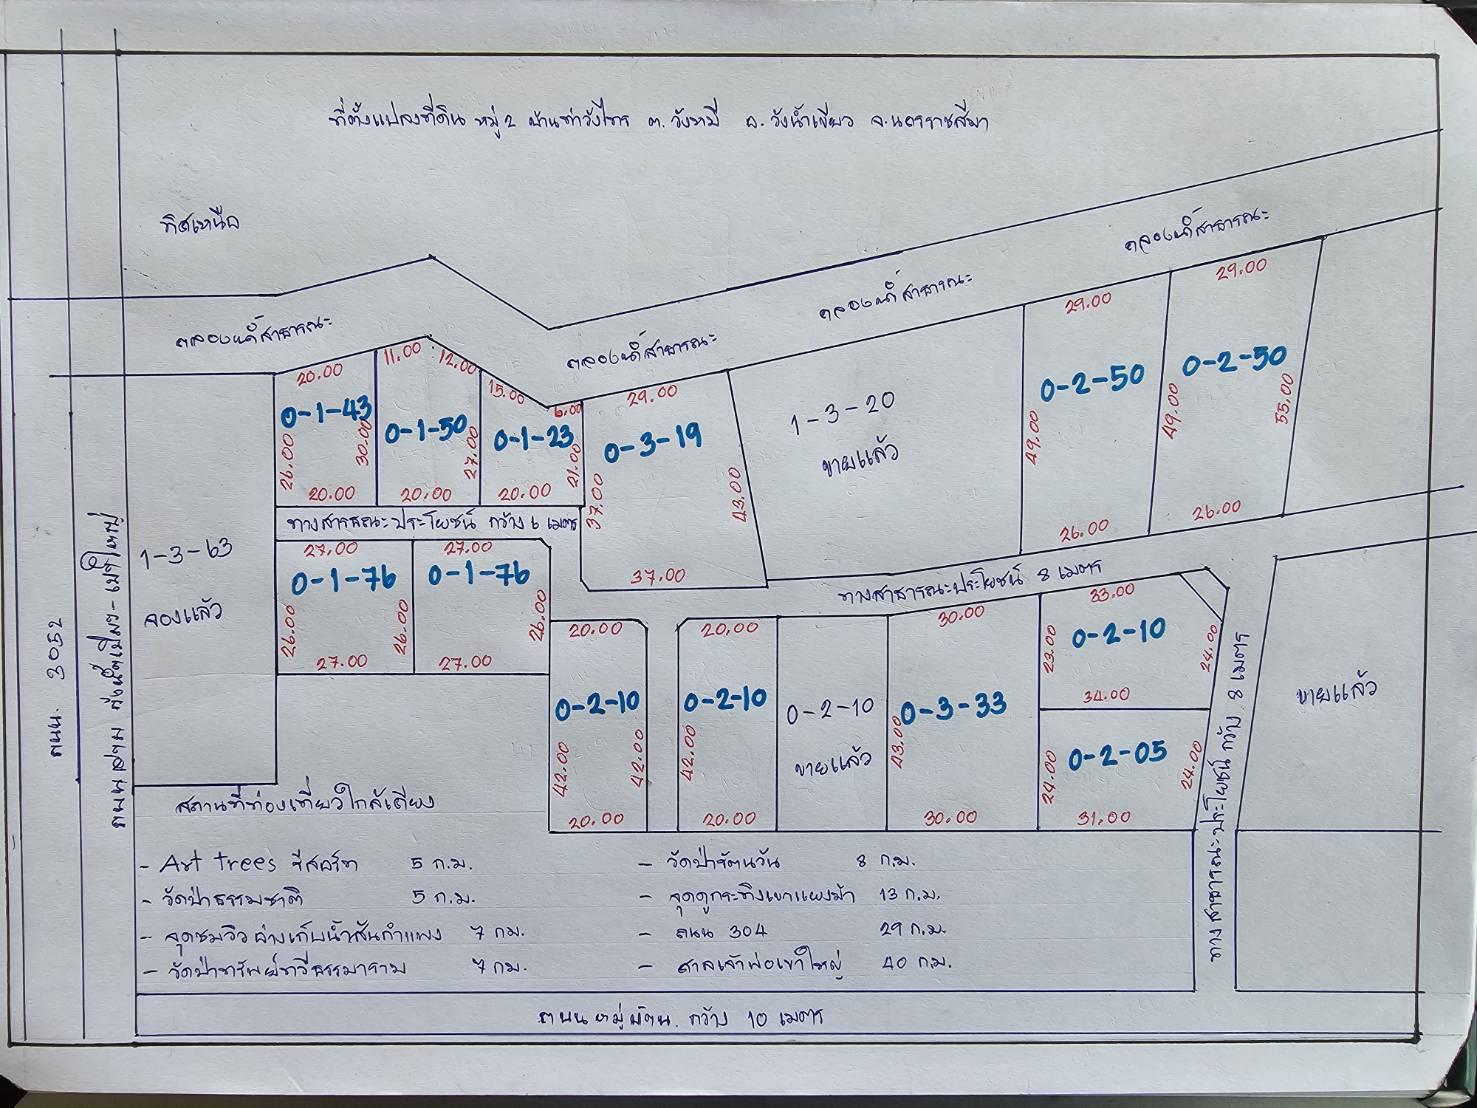 ที่ตั้งแปลงที่ดิน หมู่ 2 บ้านท่าวังไทร ต. วังหมี อ. วังน้ำเขียว จ. นครราชสีมา
ทิศเหนือ
คลองน้ำสาธารณะ
คลองน้ำสาธารณะ
คลองน้ำสาธารณะ
คลองน้ำสาธารณะ
29.00
29.00
11.00
12.00
20.00
15.00
6.00
29.00
0-1-43
0-1-50
0-1-23
0-3-19
1-3-20
ขายแล้ว
0-2-50
0-2-50
26.00
30.00
27.00
21.00
37.00
43.00
49.00
49.00
55.00
20.00
20.00
20.00
26.00
26.00
ทางสารธณะประโยชน์ กว้าง 6 เมตร
1-3-63
จองแล้ว
27.00
27.00
0-1-76
0-1-76
37.00
ทางสาธารณะประโยชน์ 8 เมตร
26.00
26.00
26.00
27.00
27.00
20.00
20.00
30.00
33.00
0-2-10
23.00
24.00
34.00
0-2-10
0-2-10
0-2-10
ขายแล้ว
0-3-33
0-2-05
ขายแล้ว
42.00
42.00
42.00
43.00
24.00
24.00
20.00
20.00
30.00
31.00
ถนน 3052
ทางสาธารณะประโยชน์ กว้าง 8 เมตร
สถานที่ท่องเที่ยวใกล้เคียง
- Art trees รีสอร์ท 5 ก.ม.
- วัดป่าธรรมชาติ 5 ก.ม.
- จุดชมวิว อ่างเก็บน้ำสันกำแพง 7 กม.
- วัดป่าทรัพย์ทวีธรรมาราม 7 กม.
- วัดป่ารัตนวัน 8 ก.ม.
- จุดดูกระทิงเขาแผงม้า 13 ก.ม.
- ถนน 304 29 ก.ม.
- ศาลเจ้าพ่อเขาใหญ่ 40 ก.ม.
ถนนหมู่บ้าน กว้าง 10 เมตร